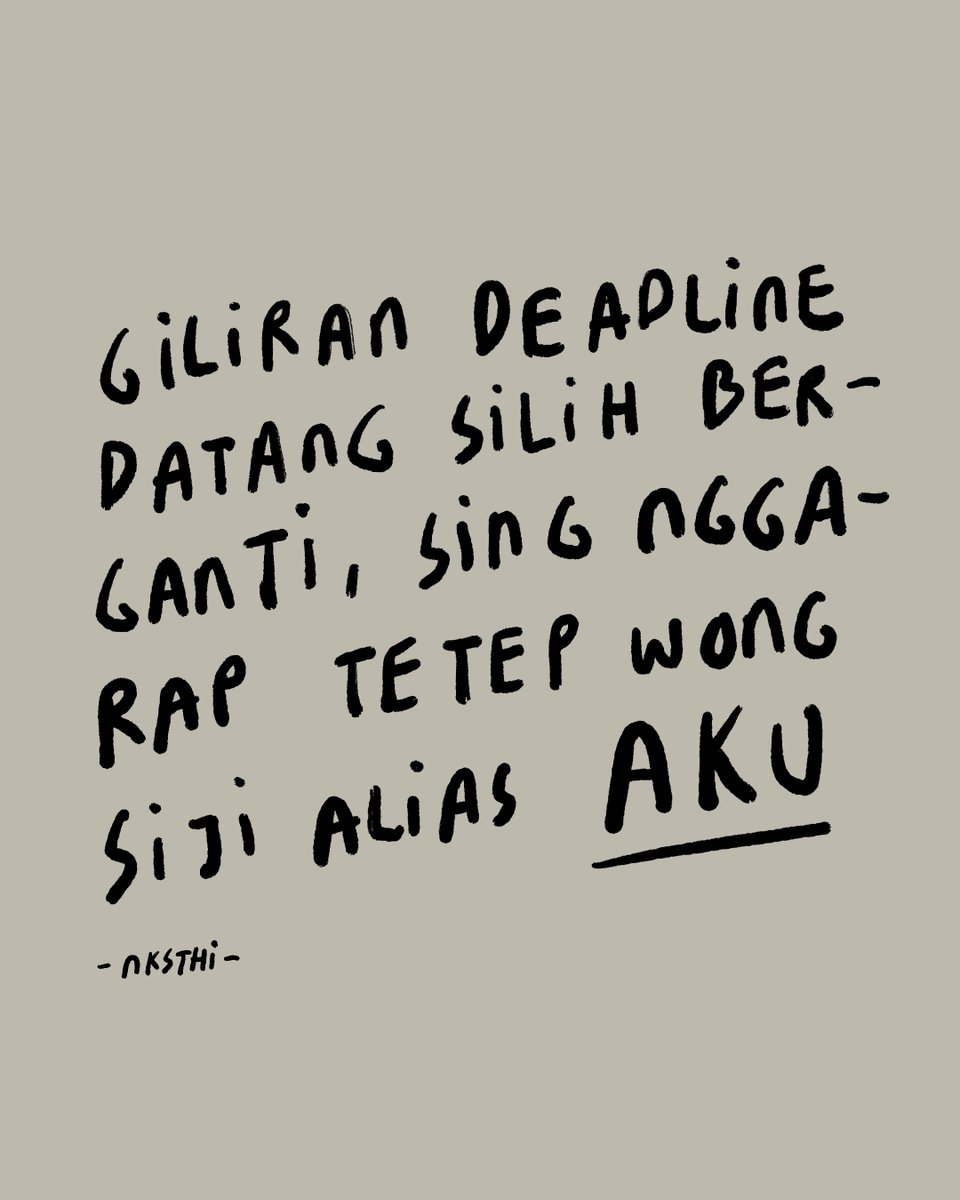 GILIRAN DEADLINE
DATANG SILIH BER-
GANTI, SING NGGA-
RAP TETEP WONG
SIJI ALIAS AKU
-NKSTHI-